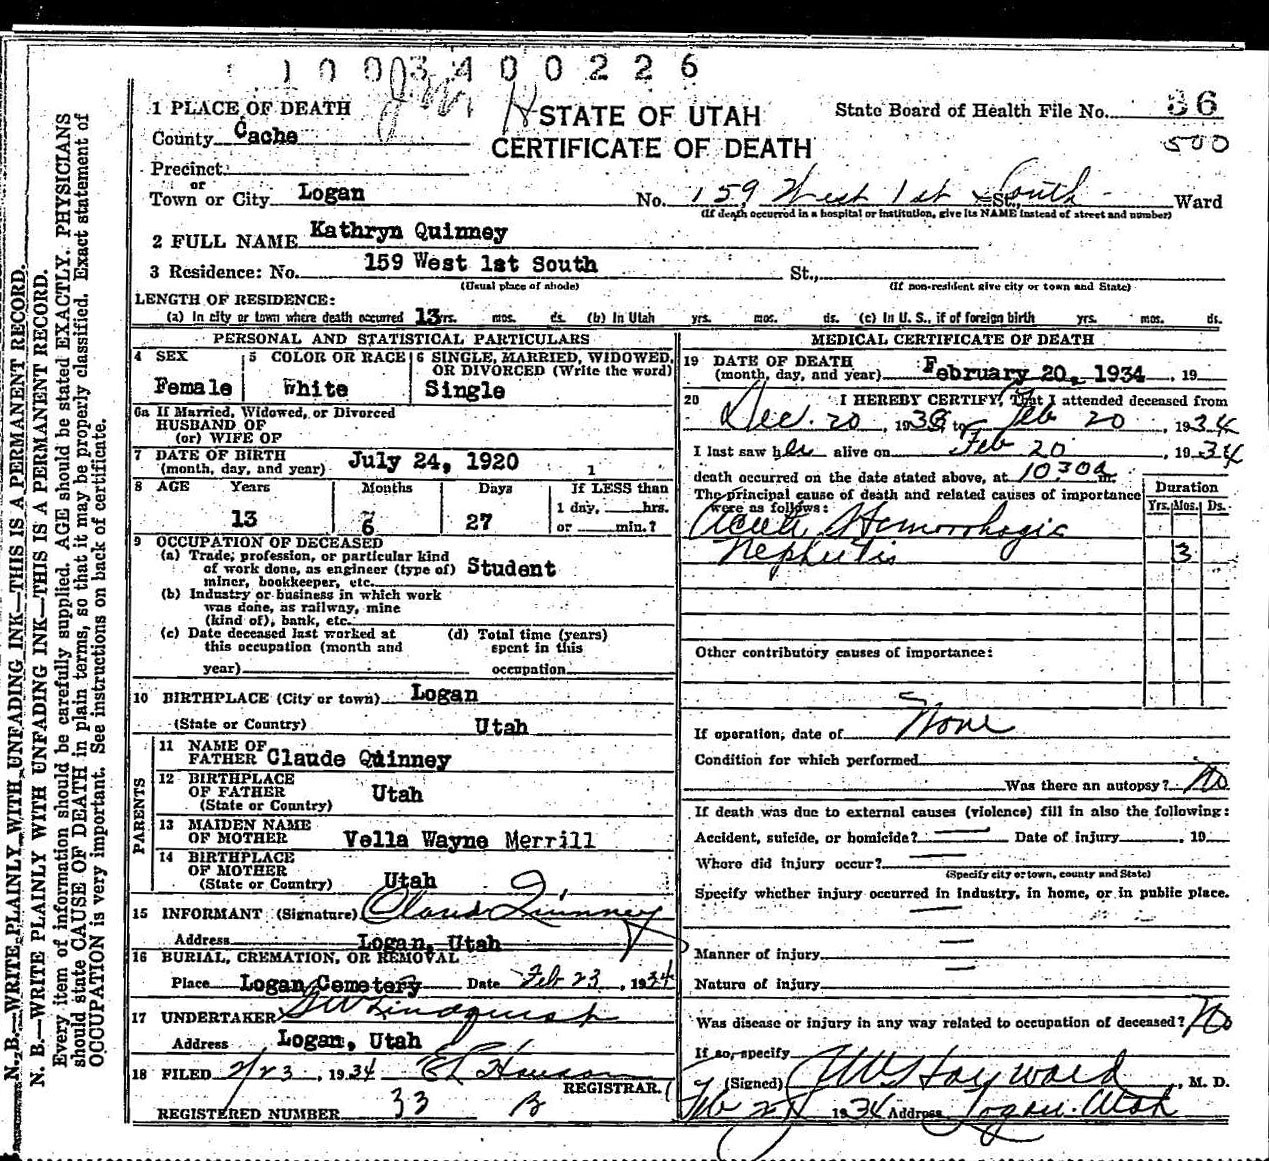 1 0 0 3 4 0 0 2 2 6
1 PLACE OF DEATH
STATE OF UTAH
CERTIFICATE OF DEATH
State Board of Health File No. 36
500
County Cache
Precinct
or
Town or City Logan No. 159 West 1st South St. Ward
(If death occurred in a hospital or institution, give its NAME instead of street and number)
2 FULL NAME Kathryn Quinney
3 Residence: No. 159 West 1st South St.,
(Usual place of abode) (If non-resident give city or town and State)
LENGTH OF RESIDENCE:
(a) In city or town where death occurred 13 yrs. mos. ds. (b) In Utah yrs. mos. ds. (c) In U. S., if of foreign birth yrs. mos. ds.
PERSONAL AND STATISTICAL PARTICULARS
4 SEX Female
5 COLOR OR RACE White
6 SINGLE, MARRIED, WIDOWED, OR DIVORCED (Write the word) Single
6a If Married, Widowed, or Divorced
HUSBAND OF
(or) WIFE OF
7 DATE OF BIRTH
(month, day, and year) July 24, 1920
8 AGE Years Months Days If LESS than
1 day, hrs.
13 6 27 or min.?
9 OCCUPATION OF DECEASED
(a) Trade, profession, or particular kind
of work done, as engineer (type of) Student
miner, bookkeeper, etc.
(b) Industry or business in which work
was done, as railway, mine
(kind of), bank, etc.
(c) Date deceased last worked at
this occupation (month and
year)
(d) Total time (years)
spent in this
occupation
10 BIRTHPLACE (City or town) Logan
(State or Country) Utah
PARENTS
11 NAME OF
FATHER Claude Quinney
12 BIRTHPLACE
OF FATHER Utah
(State or Country)
13 MAIDEN NAME
OF MOTHER Vella Wayne Merrill
14 BIRTHPLACE
OF MOTHER
(State or Country) Utah
15 INFORMANT (Signature) Claude Quinney
Address Logan, Utah
16 BURIAL, CREMATION, OR REMOVAL
Place Logan Cemetery Date Feb 23, 1934
17 UNDERTAKER Lindquist
Address Logan, Utah
18 FILED 2/23, 1934
REGISTRAR.
REGISTERED NUMBER 33
MEDICAL CERTIFICATE OF DEATH
19 DATE OF DEATH
(month, day, and year) February 20, 1934, 19
20 I HEREBY CERTIFY, That I attended deceased from
Dec. 20, 1933, to Feb 20, 1934
I last saw her alive on Feb 20, 1934
death occurred on the date stated above, at 10.30a m.
The principal cause of death and related causes of importance
were as follows:
Duration
Yrs. Mos. Ds.
Acute Hemorrhagic
Nephritis 3
Other contributory causes of importance:
If operation, date of None
Condition for which performed
Was there an autopsy? No
If death was due to external causes (violence) fill in also the following:
Accident, suicide, or homicide? Date of injury, 19
Where did injury occur?
(Specify city or town, county and State)
Specify whether injury occurred in industry, in home, or in public place.
Manner of injury
Nature of injury
Was disease or injury in any way related to occupation of deceased? No
If so, specify
(Signed) Hayward, M. D.
1934 Address Logan. Utah
N. B.—WRITE PLAINLY WITH UNFADING INK—THIS IS A PERMANENT RECORD.
N. B.—WRITE PLAINLY WITH UNFADING INK—THIS IS A PERMANENT RECORD.
Every item of information should be carefully supplied. AGE should be stated EXACTLY. PHYSICIANS
should state CAUSE OF DEATH in plain terms, so that it may be properly classified. Exact statement of
OCCUPATION is very important. See instructions on back of certificate.